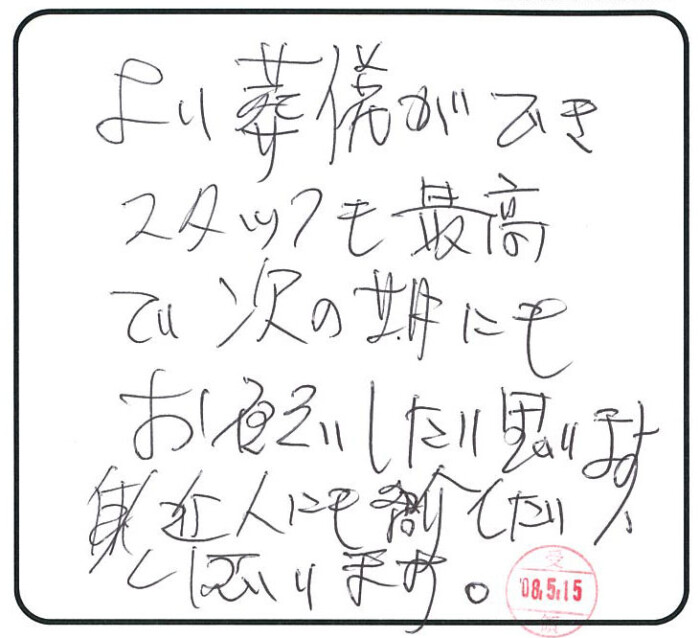 より葬儀ができ
スタッフも最高
で次の期にも
お願いしたい思います
身近人にも紹介したい
と思います。
受
'08.5.15
領